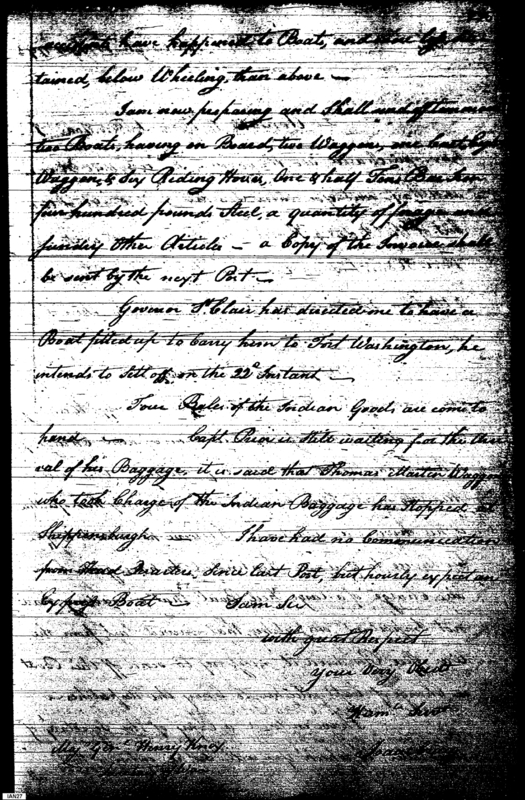 accidents have happened to Boats, and more
tained, below Wheeling, than above —
I am now preparing and Shall send off tomorrow
two Boats, having on Board, two Waggons, one
Waggon, & Six Riding Horses, One & half Tons Bar Iron
four hundred pounds Steel, a quantity of forage and
sundry Other Articles — a Copy of the Invoice shall
be sent by the next Post —
Govenor St. Clair has directed me to have a
Boat fitted up to Carry him to Fort Washington, he
intends to Sett off on the 22d Instant —
Four Bales of the Indian Goods are come to
hand — Capt. Prior is Still waiting for the Arri
val of his Baggage, it is said that Thomas Martin Waggr
who took Charge of the Indian Baggage has stopped at
Shippensburgh — I have had no Communication
from Head Quarters, Since last Post, but hourly expect an
Express Boat — I am Sir
with great Respect
your Very Obedt
Humle Servt
Isaac
Majr Genl Henry Knox
IAN27